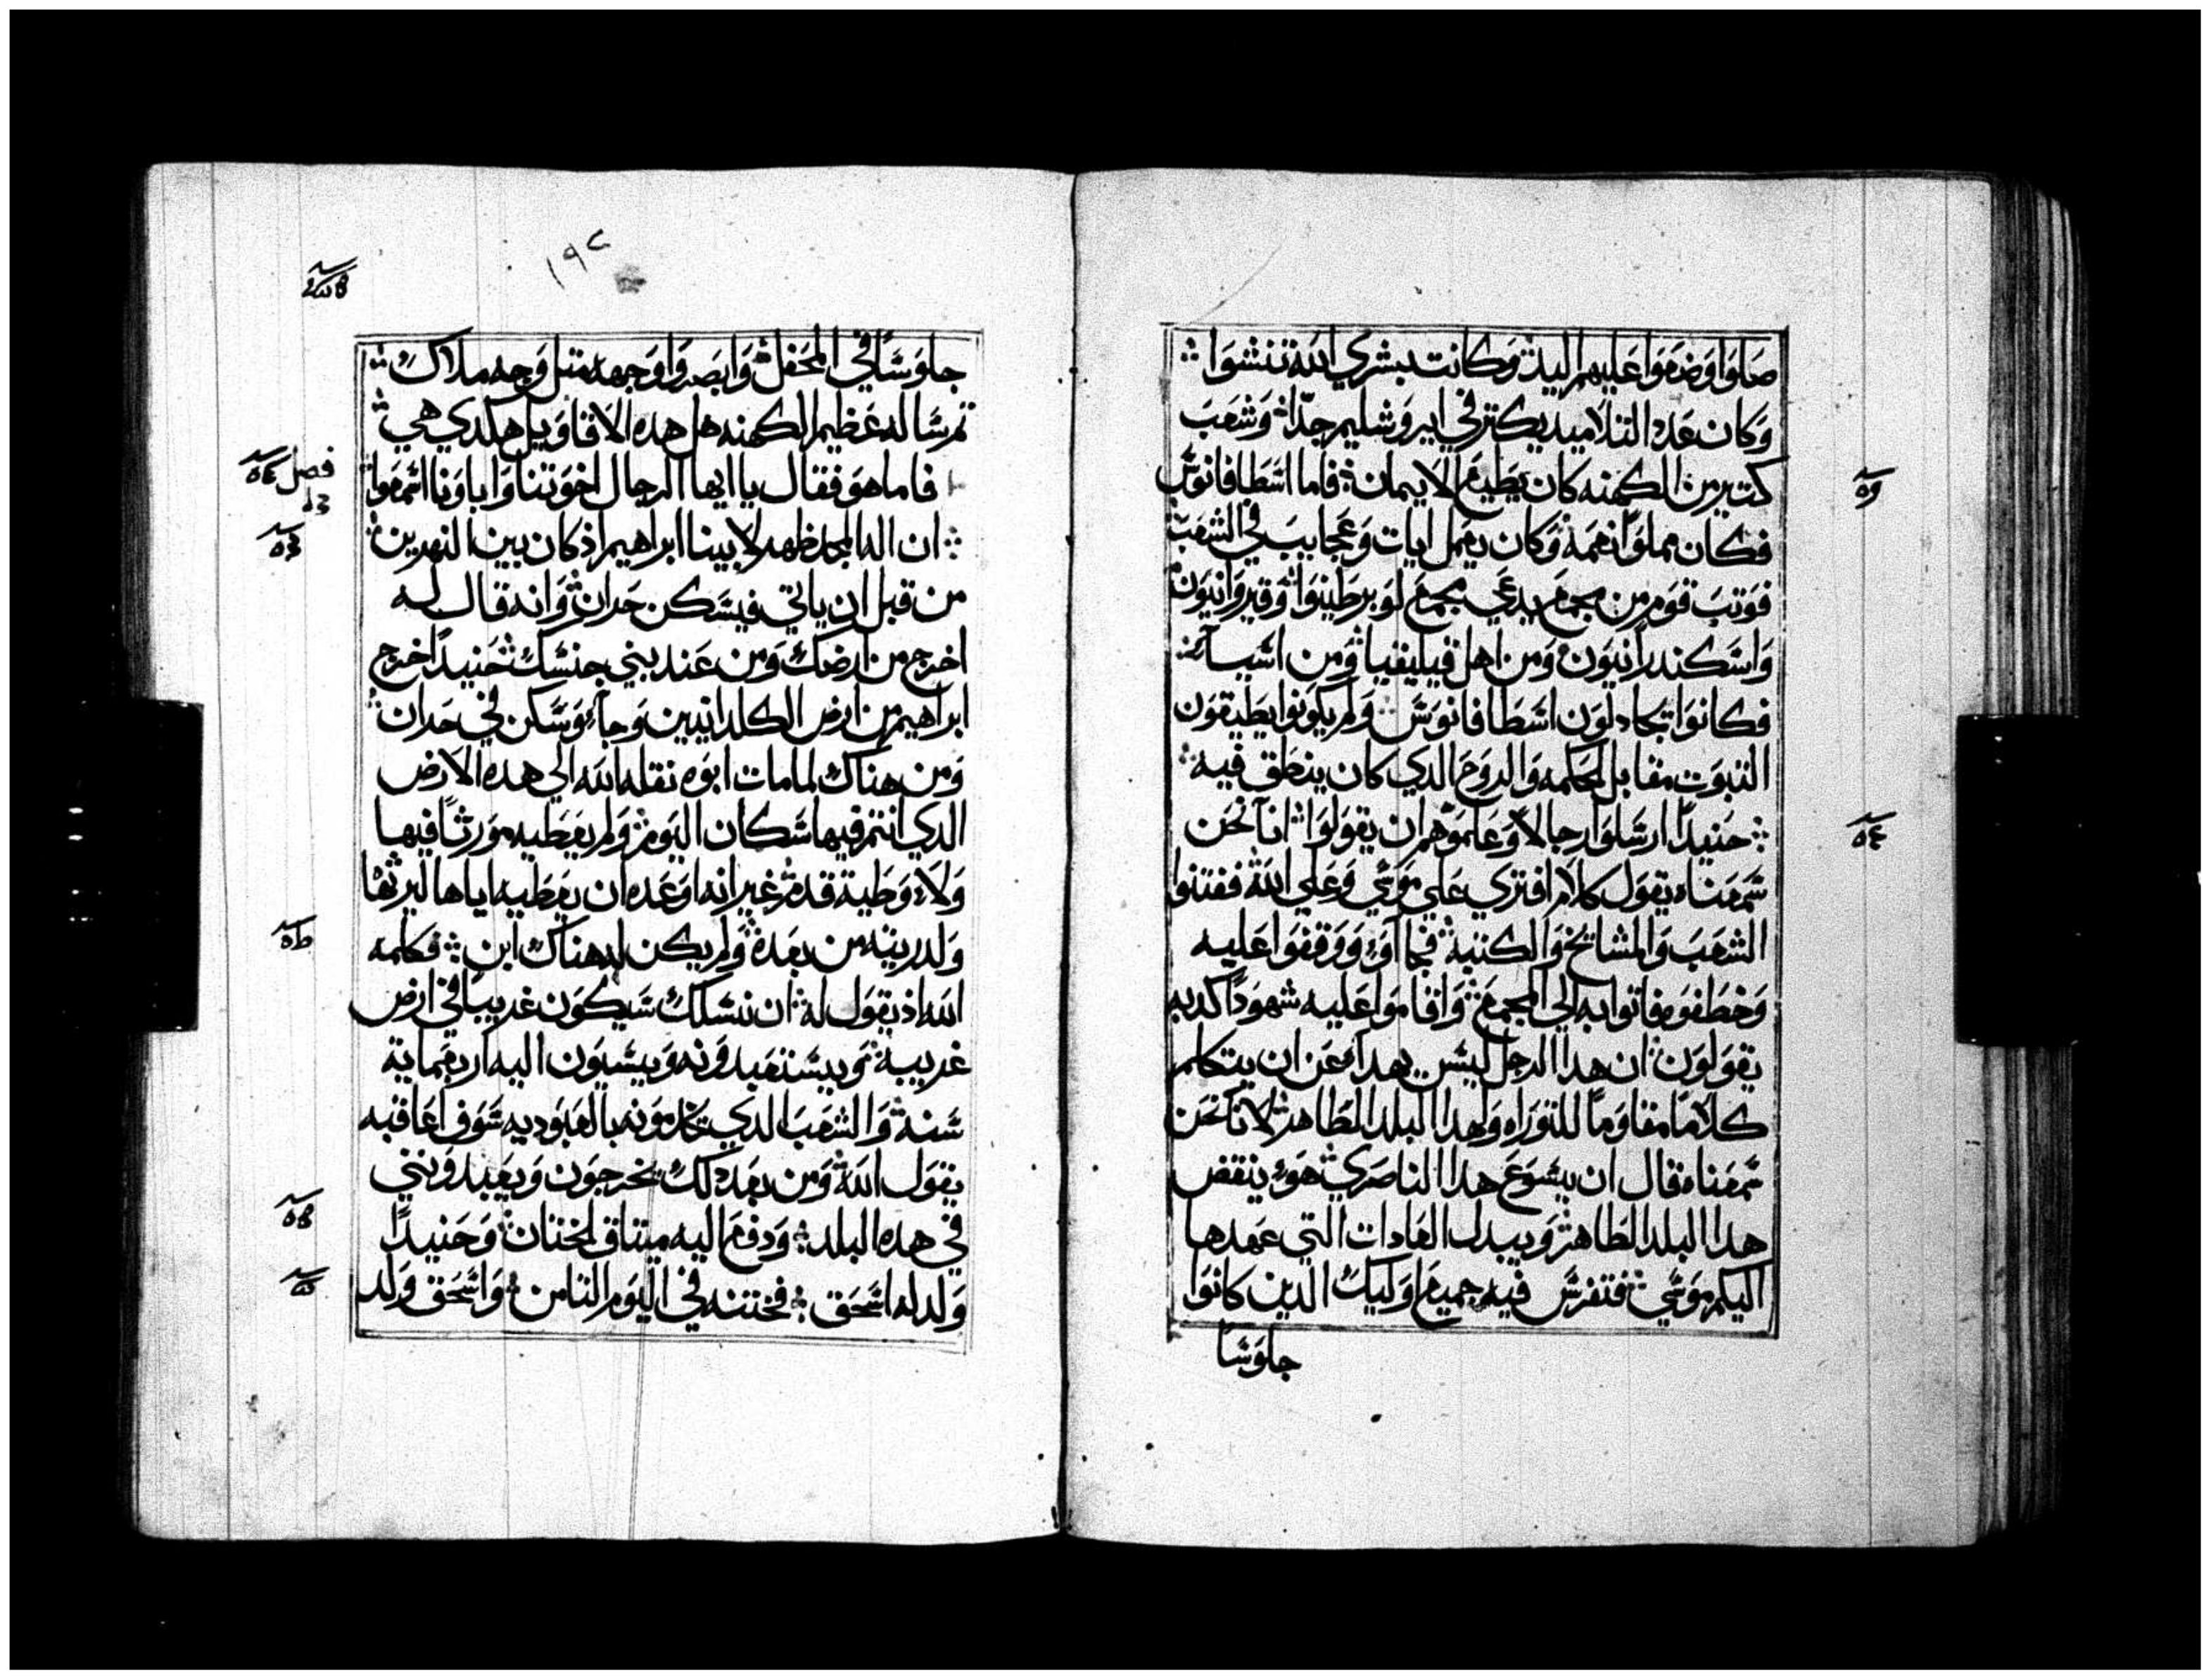 صلوا وضعوا عليهم اليد وكانت بشري الله تنشوا
وكان عدد التلاميد يكتر في ايروشليم جدا وشعب
كتير من الكهنه كان يطيع الايمان فاما اسطافانوس
فكان مملوا نعمة وكان يعمل ايات وعجايب في الشعب
فوتب قوم من مجمع يدعي مجمع لوبرطينوا وقيروانيون
واسكندرانيون ومن اهل قيليقيا ومن اسيا
فكانوا يجادلون اسطافانوس ولم يكونوا يطيقون
التبوت مقابل الحكمه والروح الدي كان ينطق فيه
حنيدا ارسلوا رجالا وعلموهم ان يقولوا اننا نحن
سمعناه يقول كلام افتري علي موسي وعلي الله ففتنوا
الشعب والمشايخ والكتبة فجاآوا ووقفوا عليه
وخطفوه فاتوا به الي المجمع واقاموا عليه شهودا كدبه
يقولون ان هدا الرجل ليس يهدا عن ان يتكلم
كلاما مقاوما للتوراه ولهدا البلد الطاهر لاننا نحن
سمعناه قال ان يسوع هدا الناصري هو ينقض
هدا البلد الطاهر ويبدل العادات التي عهدها
اليكم موسي فتفرس فيه جميع اوليك الدين كانوا
جلوسا
١٩٢
جلوسا في المحفل وابصروا وجهه متل وجه ملاك
تم ساله عظيم الكهنه هل هده الاقاويل هكدي هي
فاما هو فقال يا ايها الرجال اخوتنا وابآونا اسمعوا
فصل
ان اله المجد ظهر لابينا ابراهيم اذ كان بين النهرين
من قبل ان ياتي فيسكن حران وانه قال له
اخرج من ارضك ومن عند بني جنسك حنيدا خرج
ابراهيم من ارض الكلدانيين وجآ وسكن في حران
ومن هناك لما مات ابوه نقله الله الي هده الارض
الدي انتم فيها سكان اليوم ولم يعطيه مورثا فيها
ولا وطية قدم غير انه اوعده ان يعطيه اياها ليرثها
ولدريته من بعده ولم يكن له هناك ابن فكلمه
الله اذ يقول له ان نسلك سيكون غريبا في ارض
غريبة ويستعبدونه ويسيون اليه اربعماية
سنة والشعب الدي يخدمونه بالعبوديه سوف اعاقبه
يقول الله ومن بعد دلك يخرجون ويعبدونني
في هده البلد ودفع اليه ميتاق الختان وحنيدا
ولد له اسحق فختنه في اليوم التامن واسحق ولد